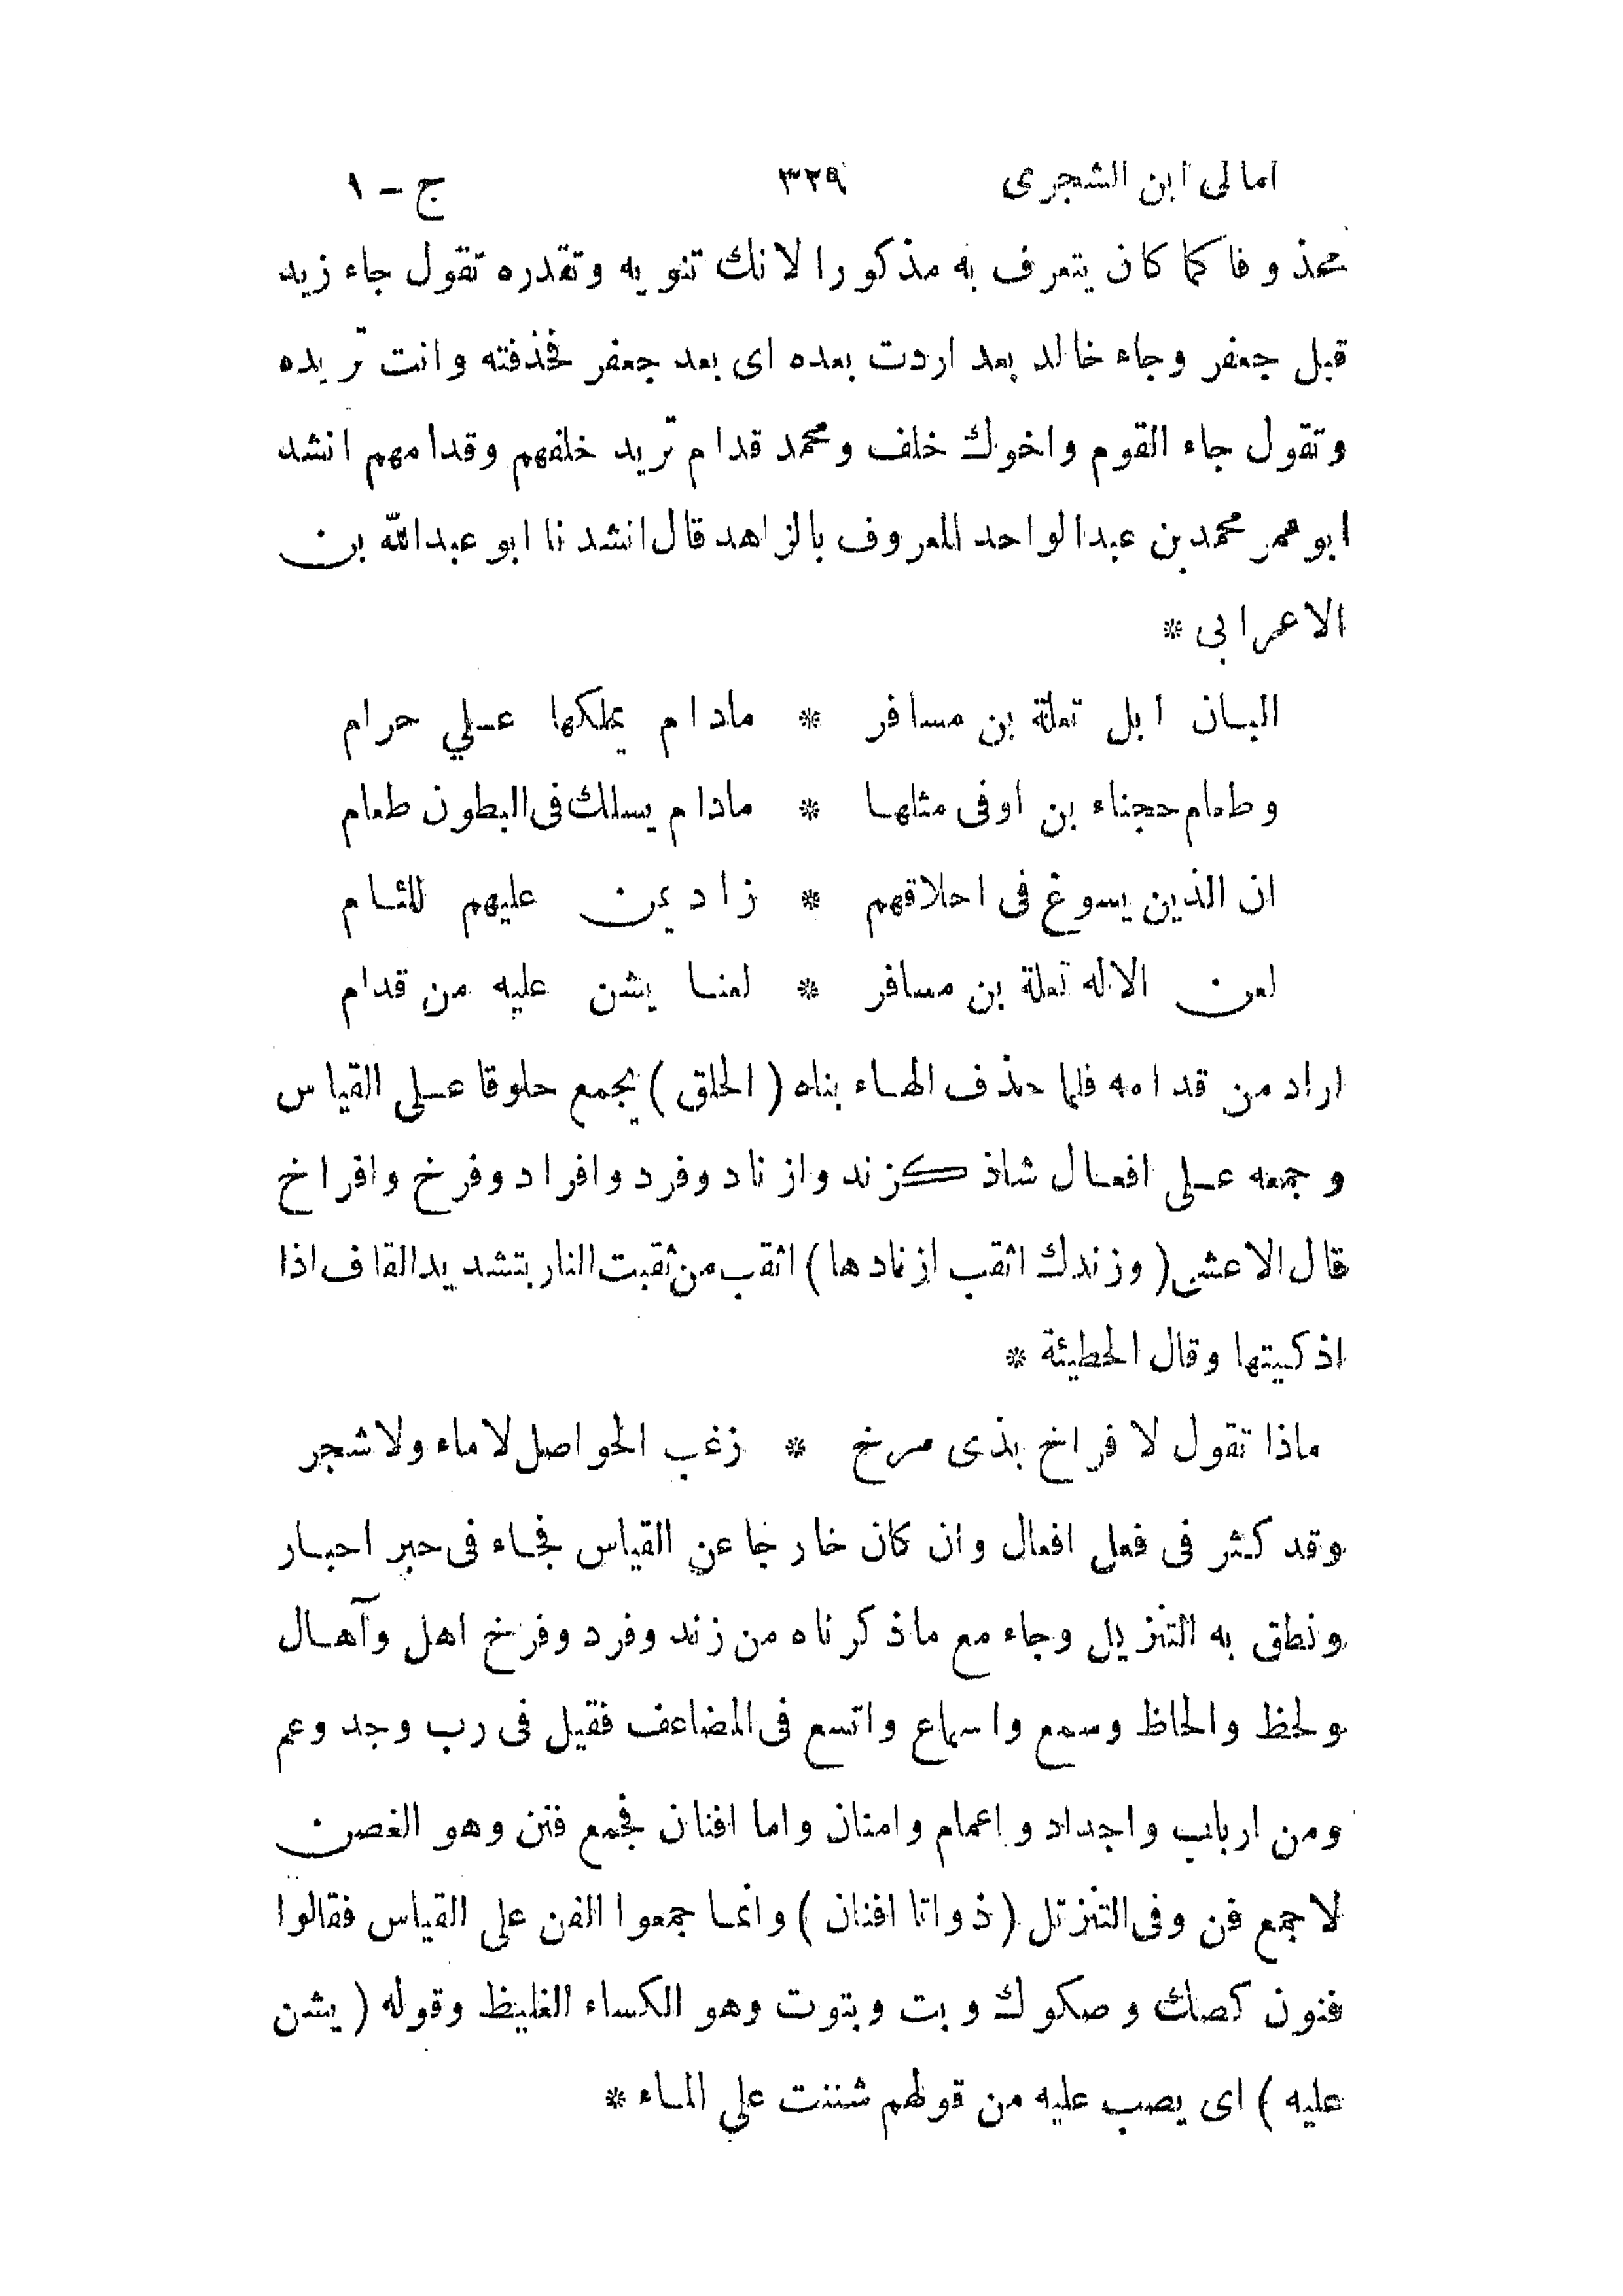 امالى ابن الشجرى ٣٢٩ ج - ١
محذوفا كما كان يتعرف به مذكورا لانك تنويه وتقدره تقول جاء زيد
قبل جعفر وجاء خالد بعد اردت بعده اى بعد جعفر فحذفته وانت تريده
وتقول جاء القوم واخوك خلف ومحمد قدام تريد خلفهم وقدامهم انشد
ابوعمر محمد بن عبدالواحد المعروف بالزاهد قال انشدنا ابو عبدالله بن
الاعرابى *
البان ابل تعلة بن مسافر * مادام يملكها على حرام
وطعام حجناء بن اوفى مثلها * مادام يسلك فى البطون طعام
ان الذين يسوغ فى احلاقهم * زاد يمن عليهم للئام
لعن الاله تعلة بن مسافر * لعنا يشن عليه من قدام
اراد من قدامه فلما حذف الهاء بناه ( الحلق ) يجمع حلوقا على القياس
وجمعه على افعال شاذ كزند وازناد وفرد وافراد وفرخ وافراخ
قال الاعشى ( وزندك اثقب ازنادها ) اثقب من ثقبت النار بتشديد القاف اذا
اذكيتها وقال الحطيئة *
ماذا تقول لافراخ بذى مرخ * زغب الحواصل لا ماء ولا شجر
وقد كثر فى فعل افعال وان كان خارجا عن القياس فجاء فى حبر احبار
ونطق به التنزيل وجاء مع ماذكرناه من زند وفرد وفرخ اهل وآهال
ولحظ والحاظ وسمع واسماع واتسع فى المضاعف فقيل فى رب وجد وعم
ومن ارباب واجداد واعمام وامنان واما افنان فجمع فنن وهو الغصن
لا جمع فن وفى التنزتل ( ذواتا افنان ) وانما جمعوا الفن على القياس فقالوا
فنون كصك وصكوك وبت وبتوت وهو الكساء الغليظ وقوله ( يشن
عليه ) اى يصب عليه من قولهم شننت على الماء *